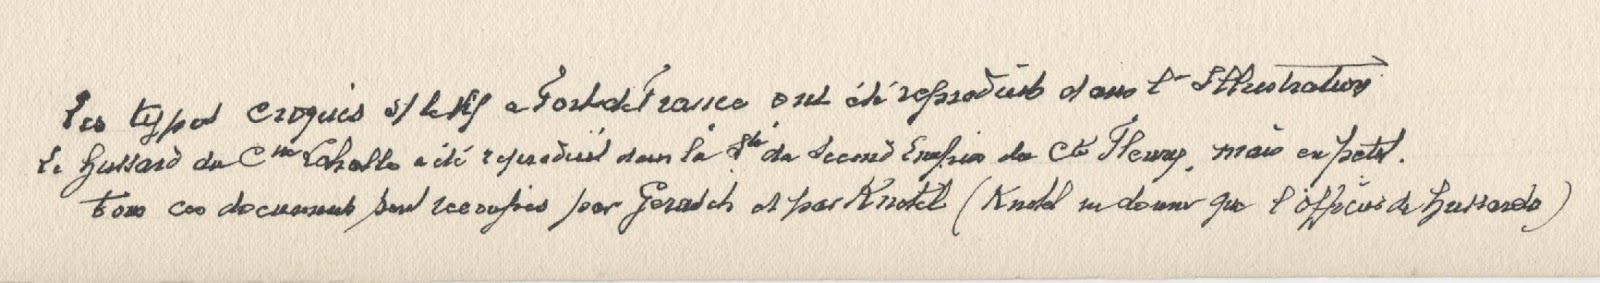 Les types croqués s/ le vif à Fort de France ont été reproduits dans l'Illustration
Le hussard du Cne Lahalle a été reproduit dans la Sté du Second Empire du Cte Fleury, mais en petit.
tous ces documents sont recoupés par Gerasch et par Knötel (Knötel ne donne que l'officier de hussards)